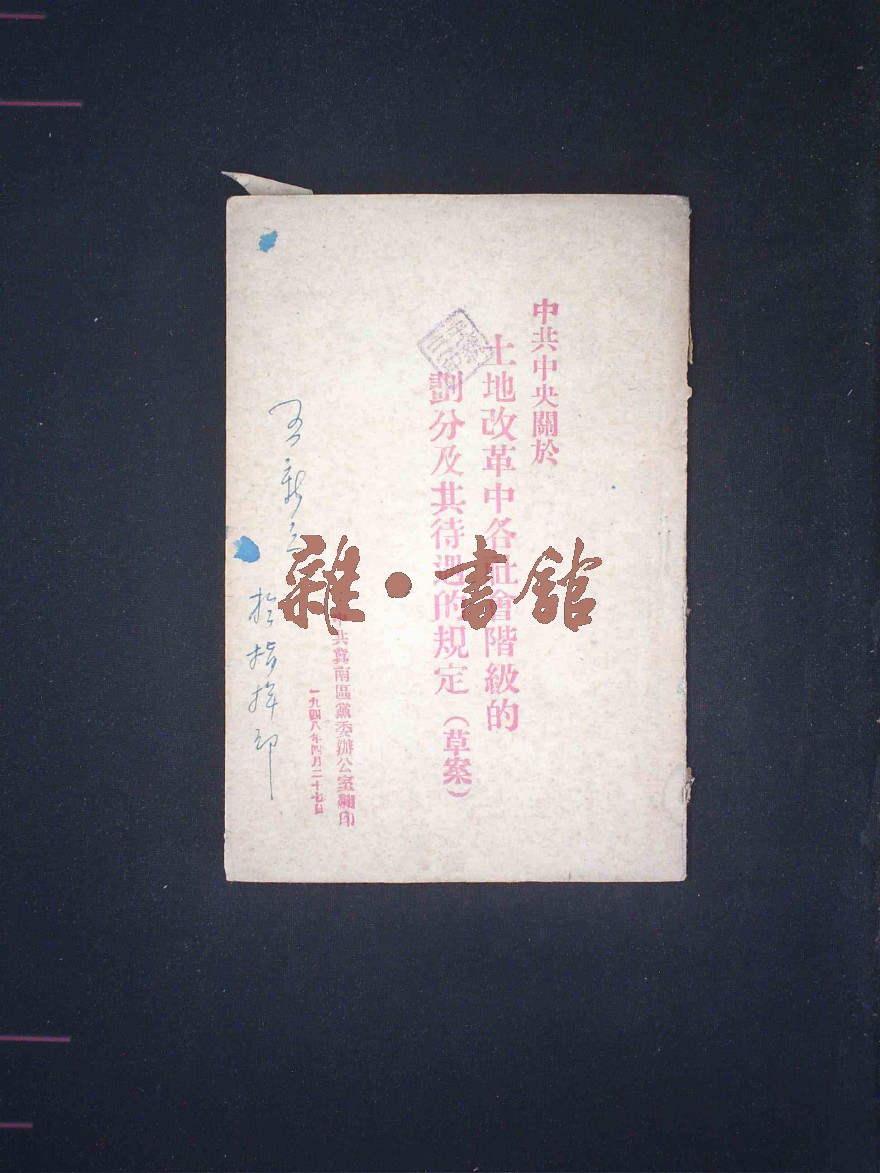 中共中央關於
土地改革中各社會階級的
劃分及其待遇的規定（草案）
中共冀南區黨委辦公室翻印
一九四八年四月二十七日
於指揮部
雜·書館